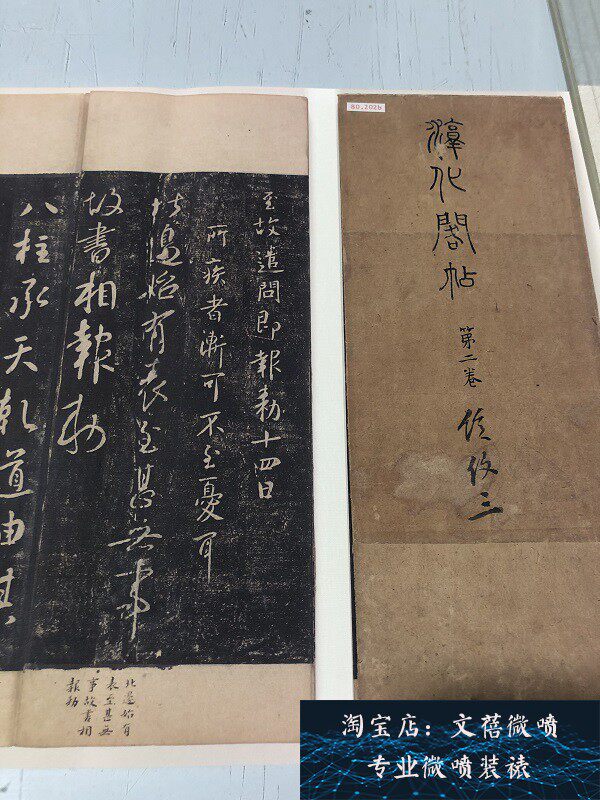 80.2026
淳化閣帖
第二卷
至故遣問即報勅十四日
所疾者漸可不至憂耳
北邊始有表至甚無事
故書相報勅
八柱承天乾道由其
北邊始有
表至甚無
事故書相
報勅
淘宝店：文蓓微喷
专业微喷装裱